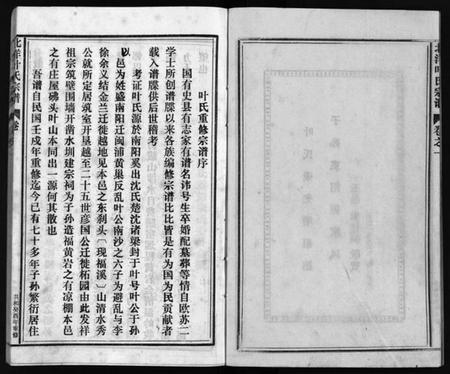 叶氏重修宗谱序
国有史县有志家有谱名讳号生卒婚配墓葬等情自欧苏二
学士所创谱牒以来各族编修宗谱比比皆是有为国为民贡献者
载入谱牒供后世稽考
考证叶氏源於南阳系出沈氏楚沈诸梁封于叶号叶公于孙
以邑为姓盛南阳迁闽浦黄巢反乱叶公南沙之六子为避乱与李
徐余义结金兰迁徙越地见本邑之东刹头〔现福溪〕山清水秀
公就所定居筑室开垦越至二十五世彦国公迁徙柘园由此发祥
祖宗筑壁围墙开凿水圳建宗祠为子孙造福黄岩之有凉棚本邑
之有庄屋砩头叶山本同出一源何其散也
吾谱自民国壬戌年重修迄今已有七十多年子孙繁衍居住
北洋叶氏宗谱
卷
北洋叶氏宗谱
卷之一